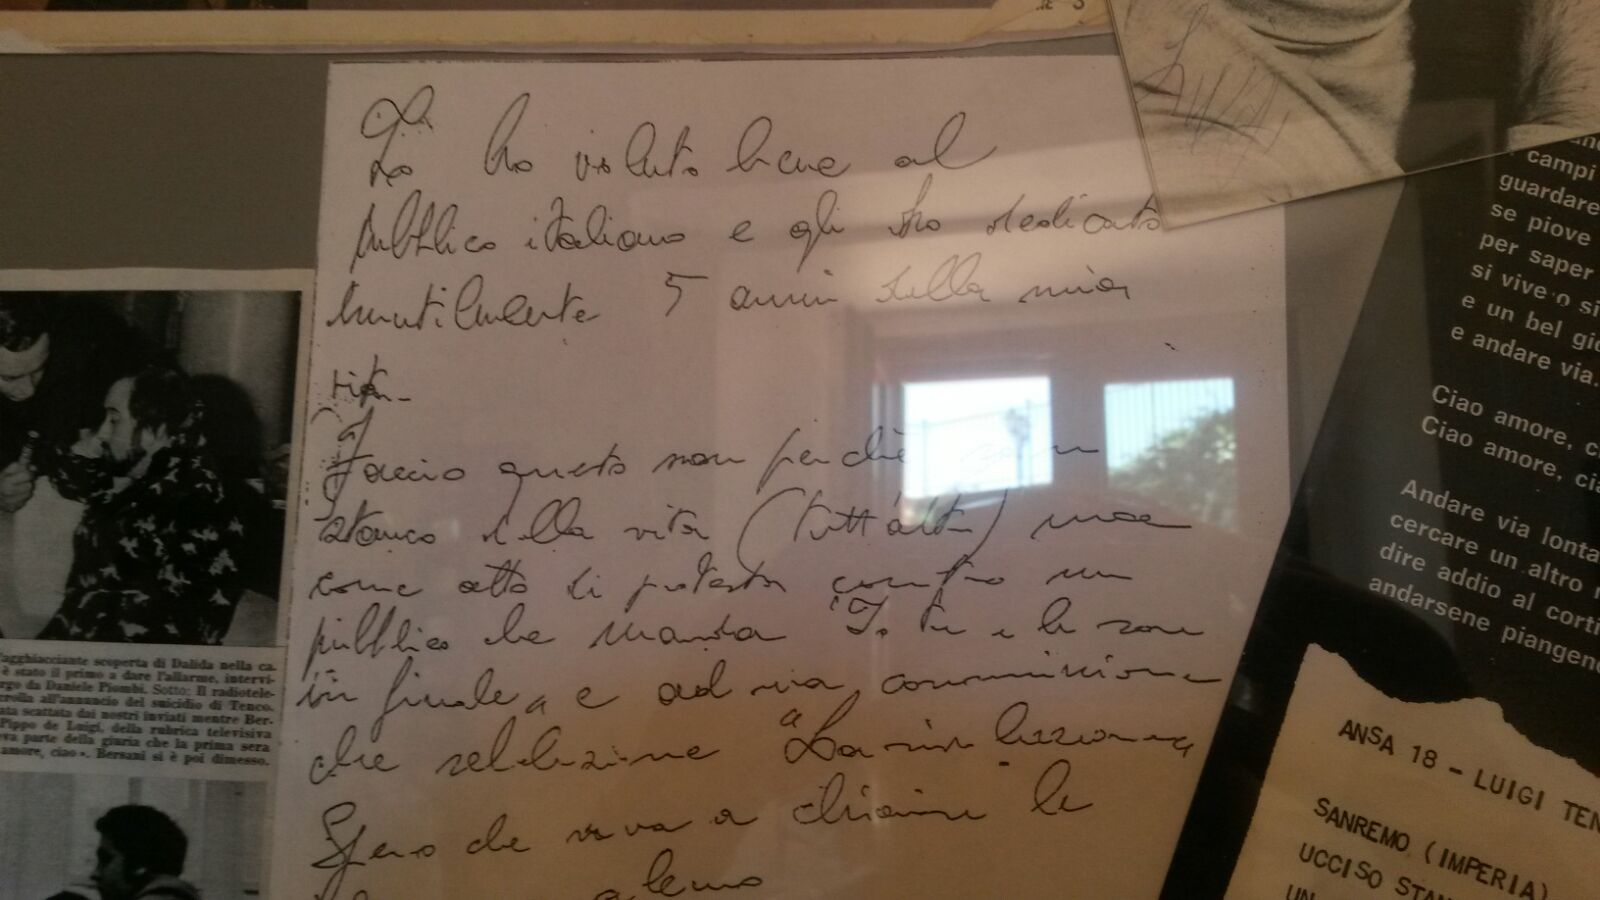 Io ho voluto bene al
pubblico italiano e gli ho dedicato
inutilmente 5 anni della mia
vita.
Faccio questo non perchè sono
stanco della vita (tutt'altro) ma
come atto di protesta contro un
pubblico che manda "Io tu e le rose
in finale" e ad una commissione
che seleziona "La rivoluzione"
Spero che serva a chiarire le
'agghiacciante scoperta di Dalida nella ca-
è stato il primo a dare l'allarme, intervi-
rgo da Daniele Piombi. Sotto: Il radiotele-
crolla all'annuncio del suicidio di Tenco.
ata scattata dai nostri inviati mentre Ber-
Pippo de Luigi, della rubrica televisiva
eva parte della giuria che la prima sera
amore, ciao». Bersani si è poi dimesso.
campi
guardare
se piove
per saper
si vive o si
e un bel gio
e andare via.
Ciao amore, ci
Ciao amore, cia
Andare via lonta
cercare un altro
dire addio al corti
andarsene piangen
ANSA 18 - LUIGI TEN
SANREMO (IMPERIA)
UCCISO STAN
UN